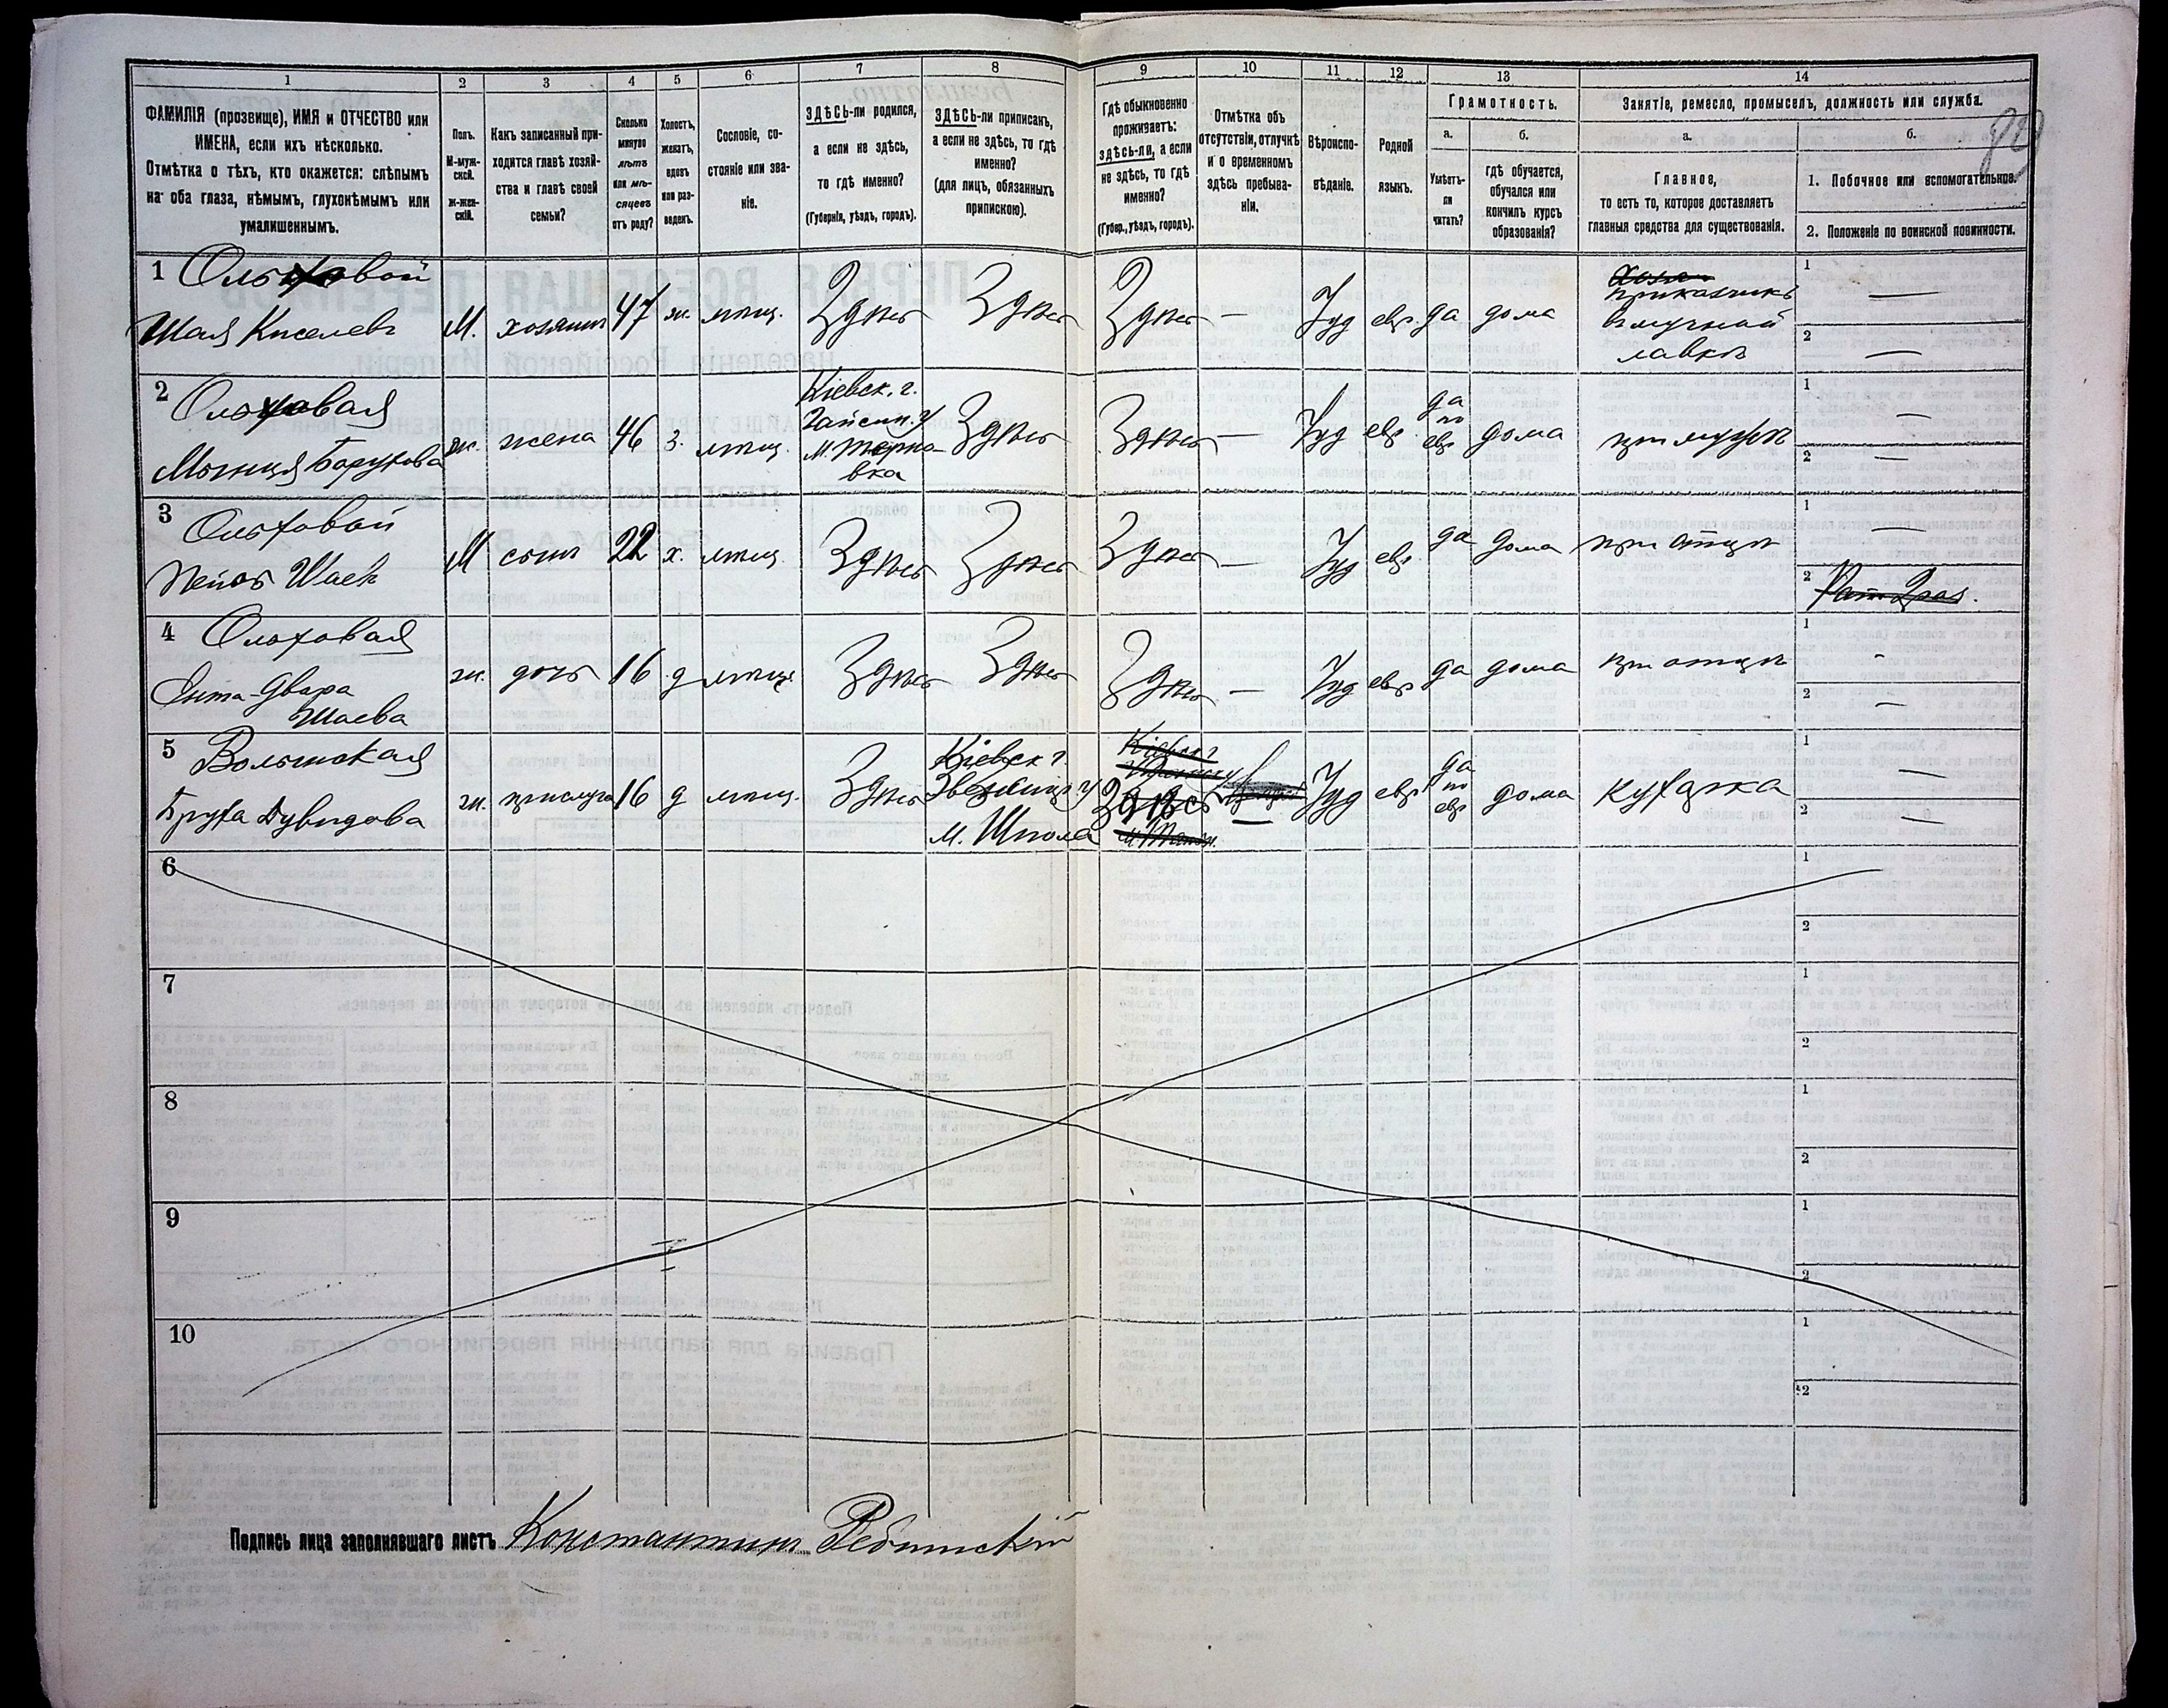 1 2 3 4 5 6 7 8 9 10 11 12 13 14
ФАМИЛІЯ (прозвище), ИМЯ и ОТЧЕСТВО или
ИМЕНА, если ихъ нѣсколько.
Отмѣтка о тѣхъ, кто окажется: слѣпымъ
на оба глаза, нѣмымъ, глухонѣмымъ или
умалишеннымъ.
Полъ.
М-муж-
ской.
Ж-жен-
скій.
Какъ записанный при-
ходится главѣ хозяй-
ства и главѣ своей
семьи?
Сколько
минуло
лѣтъ
или мѣ-
сяцевъ
отъ роду?
Холостъ,
женатъ,
вдовъ
или раз-
веденъ.
Сословіе, со-
стояніе или зва-
ніе.
ЗДѢСЬ-ли родился,
а если не здѣсь,
то гдѣ именно?
(Губернія, уѣздъ, городъ).
ЗДѢСЬ-ли приписанъ,
а если не здѣсь, то гдѣ
именно?
(для лицъ, обязанныхъ
припискою).
Гдѣ обыкновенно
проживаетъ:
здѣсь-ли, а если
не здѣсь, то гдѣ
именно?
(Губер., уѣздъ, городъ).
Отмѣтка объ
отсутствіи, отлучкѣ
и о временномъ
здѣсь пребыва-
ніи.
Вѣроиспо-
вѣданіе.
Родной
языкъ.
Грамотность.
а.
Умѣетъ-
ли
читать?
б.
гдѣ обучается,
обучался или
кончилъ курсъ
образованія?
Занятіе, ремесло, промыселъ, должность или служба.
а.
Главное,
то есть то, которое доставляетъ
главныя средства для существованія.
б.
1. Побочное или вспомогательное.
2. Положеніе по воинской повинности.
1 Ольховой
Шая Киселевъ
М. хозяинъ 47 ж. мѣщ. Здѣсь Здѣсь Здѣсь — Іуд евр. да дома
приказчикъ
въ мучной
лавкѣ
1 —
2 —
2 Ольховая
Борухова
ж. жена 46 з. мѣщ.
Кіевск. г.
Гайсин. у
м. Терно-
вка
Здѣсь Здѣсь — Іуд евр.
да
по
евр
дома при мужѣ
1 —
2 —
3 Ольховой
М сынъ 22 х. мѣщ. Здѣсь Здѣсь Здѣсь — Іуд евр. да дома при отцѣ
1 —
2
4 Ольховая
Двара
Шаева
ж. дочь 16 д мѣщ. Здѣсь Здѣсь Здѣсь — Іуд евр да дома при отцѣ
1 -
2 —
5 Волынская
Бруха Дувидова
ж. прислуга 16 д мѣщ. Здѣсь
Кіевск г.
Звениг у
м. Шпола
Здѣсь — Іуд евр
да
по
евр
дома кухарка
1 —
2 —
6
1
2
7
1
2
8
1
2
9
1
2
10
1
2
Подпись лица заполнявшаго листъ Константинъ